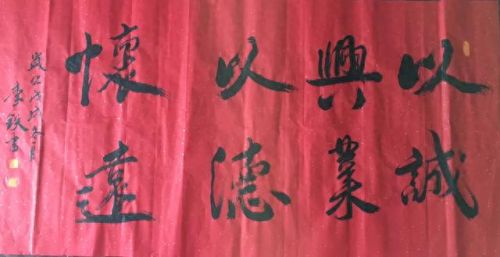 以誠
興業
以德
懷遠
歲次戊戌冬月
李
書